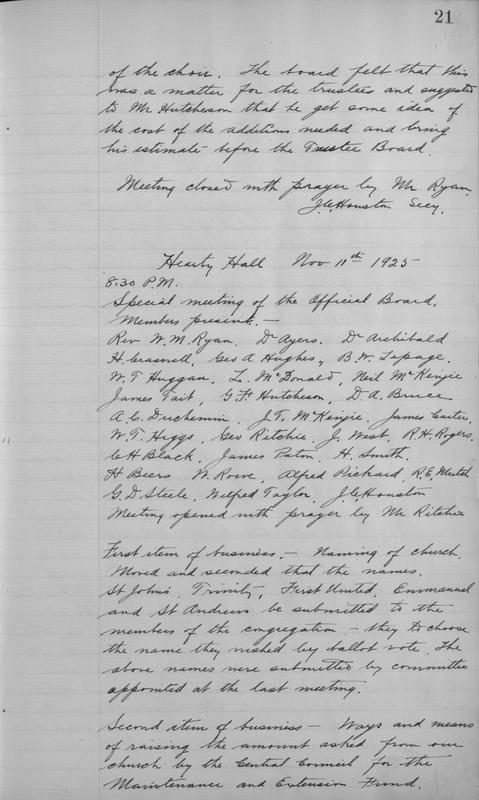 21
of the choir. The board felt that this
was a matter for the trustees and suggests
to Mr Hutcheson that he get some idea of
the cost of the additions needed and bring
his estimate before the Trustee Board.
Meeting closed with prayer by Mr Ryan.
J.C. Houston Secy.
Hearty Hall Nov 11th 1925
8.30 P.M.
Special meeting of the Official Board.
Members present. —
Rev W.M. Ryan, Dr Ayers. Dr Archibald
H. Craswell, Geo A Hughes, B.W. Lepage.
W.T Huggan, L. McDonald, Neil McKenzie
James Tait, G.F. Hutcheson, D.A. Bruce
A.C. Duchemin, J.T. McKenzie, James Carter,
W.T. Higgs, Geo Ritchie, J. West, R.H. Rogers,
C H Black, James Paton, H. Smith.
H Beers, W. Rowe, Alfred Pickard, R.E. Mutch
G.D Steele, Wilfred Taylor, J.C. Houston
Meeting opened with prayer by Mr Ritchie
First item of business. — Naming of church.
Moved and seconded that the names,
St Johns, Trinity, First United, Emmanuel
and St Andrews be submitted to the
members of the congregation — they to choose
the name they wished by ballot vote. The
above names were submitted by committee
appointed at the last meeting.
Second item of business — Ways and means
of raising the amount asked from our
church by the Central Council for the
Maintenance and Extension Fund.